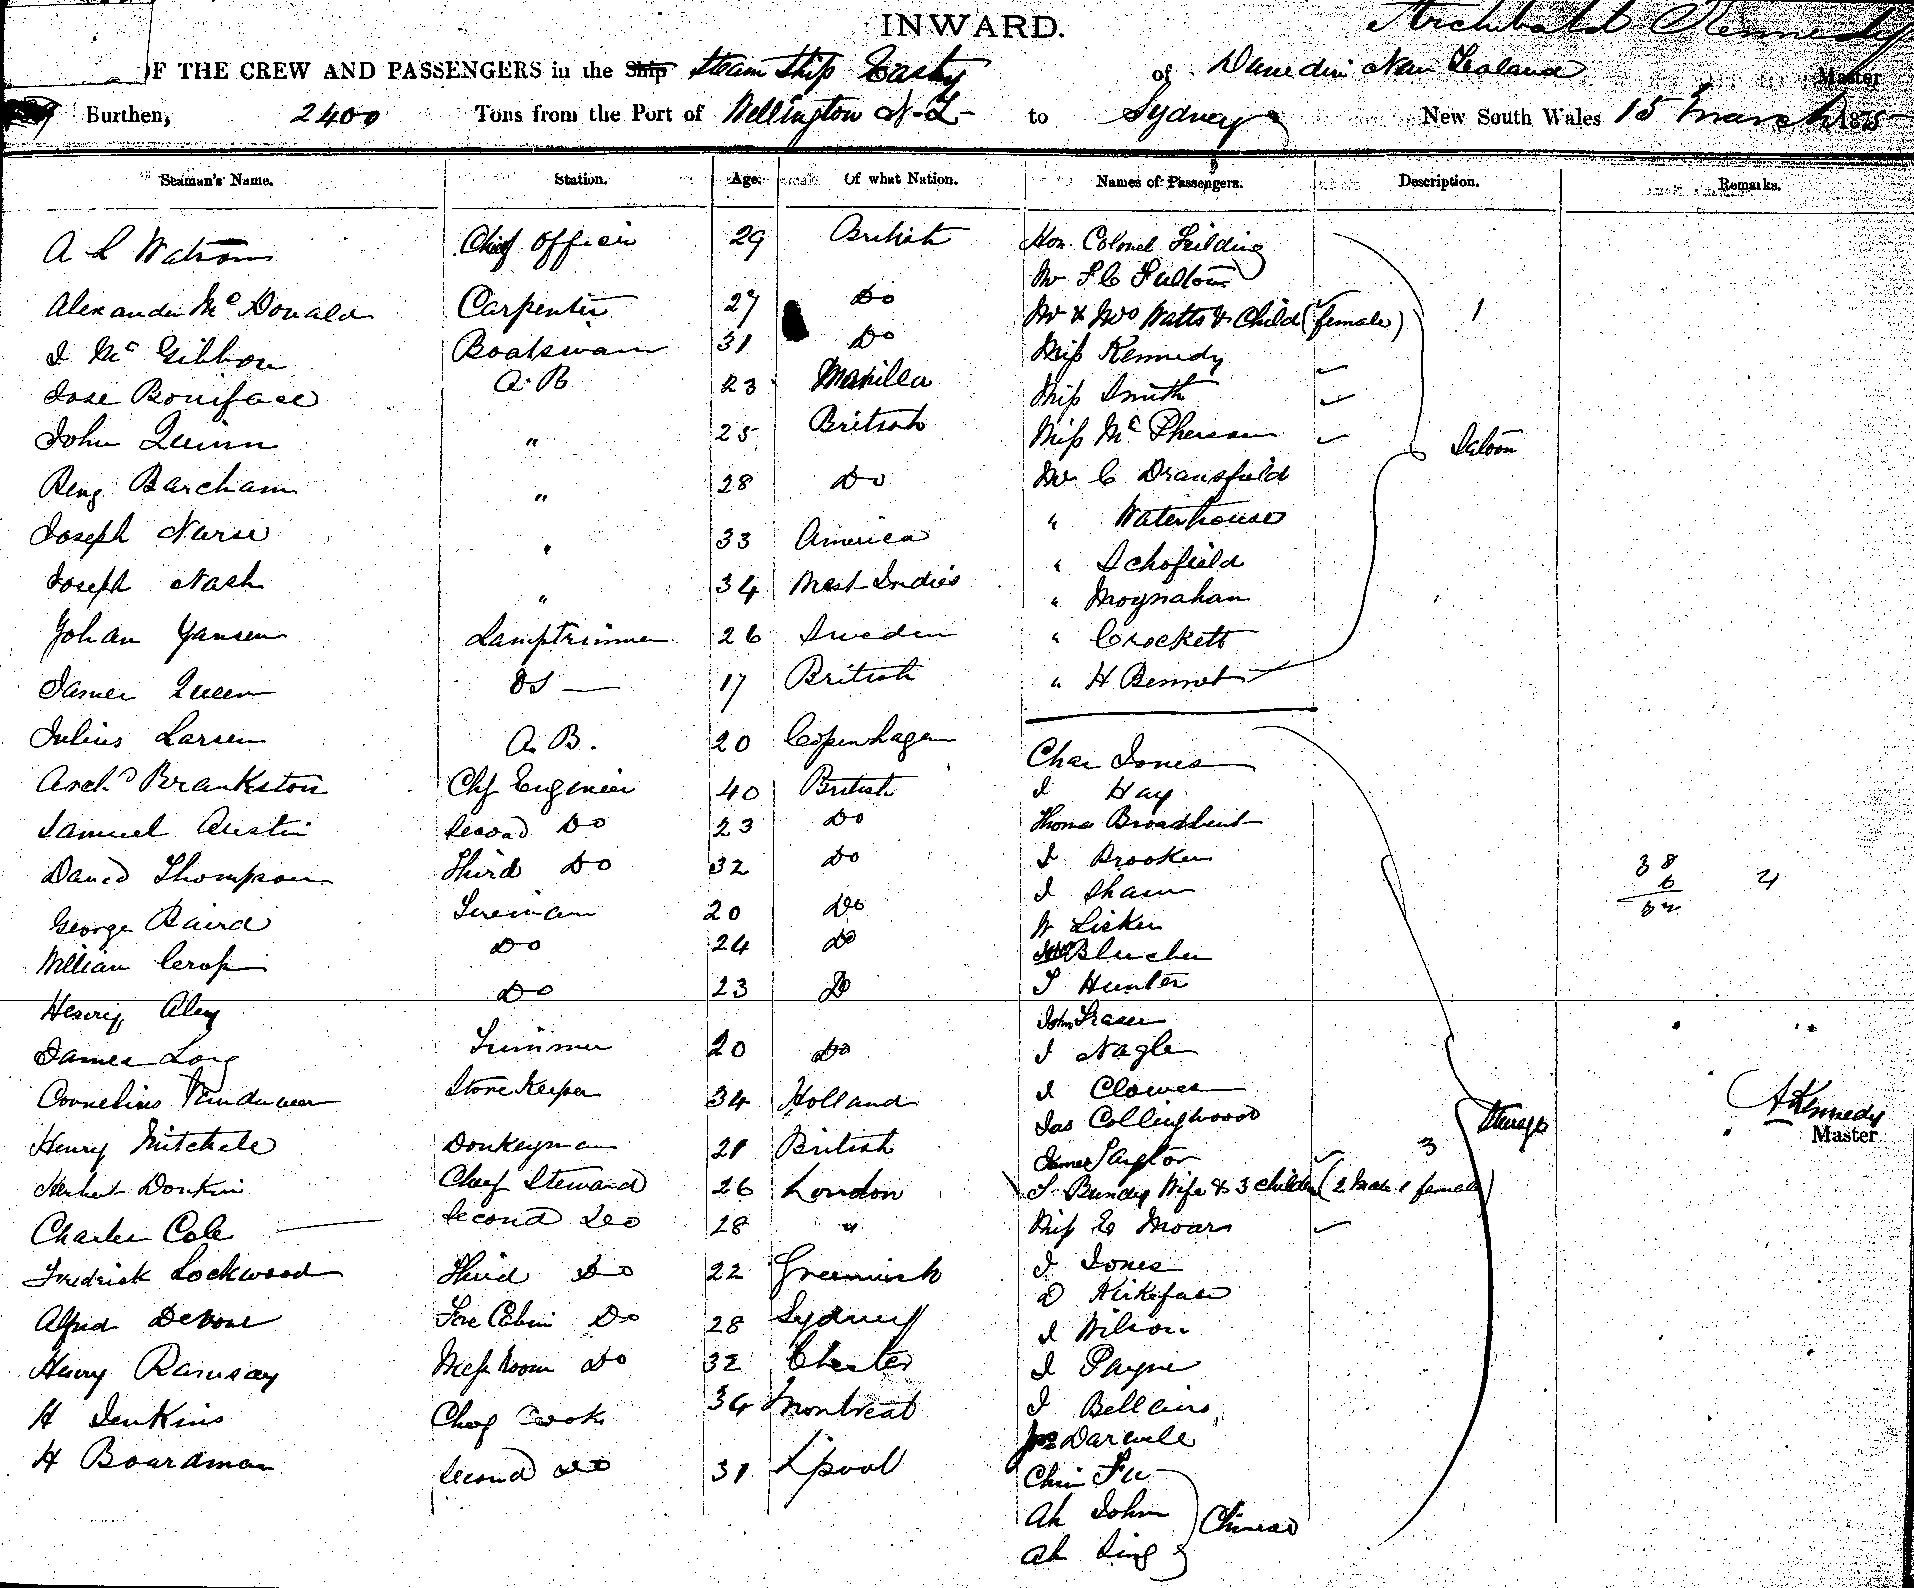 INWARD.
Archibald Kennedy
OF THE CREW AND PASSENGERS in the Ship Steam Ship Easby of Dunedin New Zealand Master
Burthen, 2400 Tons from the Port of Wellington N.Z. to Sydney New South Wales 15 March 1875
Seaman's Name. Station. Age. Of what Nation. Names of Passengers. Description. Remarks.
A L Watson Chief Officer 29 British Hon. Colonel Feilding
Mr F C Fulton
Alexander McDonald Carpenter 27 Do Mr & Mrs Watts & Child (female) 1
J McGibbon Boatswain 31 Do Miss Kennedy
Jose Boniface A.B 23 Manilla Miss Smith
John Quinn " 25 British Miss McPherson Saloon
Benj Barcham " 28 Do Mr C Dransfield
" Waterhouse
Joseph Nurse " 33 America " Schofield
Joseph Nash " 34 West Indies " Moynahan
Johan Yansen Lamptrimmer 26 Sweden " Crockett
James Queen OS 17 British " H Bennet
Julius Larsen A.B. 20 Copenhagen Chas Jones
Archd Brankston Chf Engineer 40 British J Hay
Samuel Austin Second Do 23 Do Thomas Broadbent
David Thompson Third Do 32 Do J Brooker 38 6
J Shaw
George Baird Fireman 20 Do W Lisken
William Crop Do 24 Do Blucher
Henry Aley Do 23 Do J Hunter
John Fraser
James Long Trimmer 20 Do J Nagle
Cornelius Store Keeper 34 Holland J Clowes A Kennedy
Jas Collingwood Steerage
Henry Mitchele Donkeyman 21 British James Paylor 3 Master
Herbert Donkin Chief Steward 26 London J Bundy Wife & 3 children (2 male 1 female)
Charles Cole Second Do 28 " Miss E Moar
Fredrick Lockwood Third Do 22 Greenwich J Jones
D
Alfred Devone Fore Cabin Do 28 Sydney J Wilson
Henry Ramsay Mess Room Do 32 Chester J Payne
H Jenkins Chief Cook 34 Montreal J Bellairs
Darvile
H Boardman Second Do 31 L'pool Chin Fu
Ah John Chinese
Ah Sing